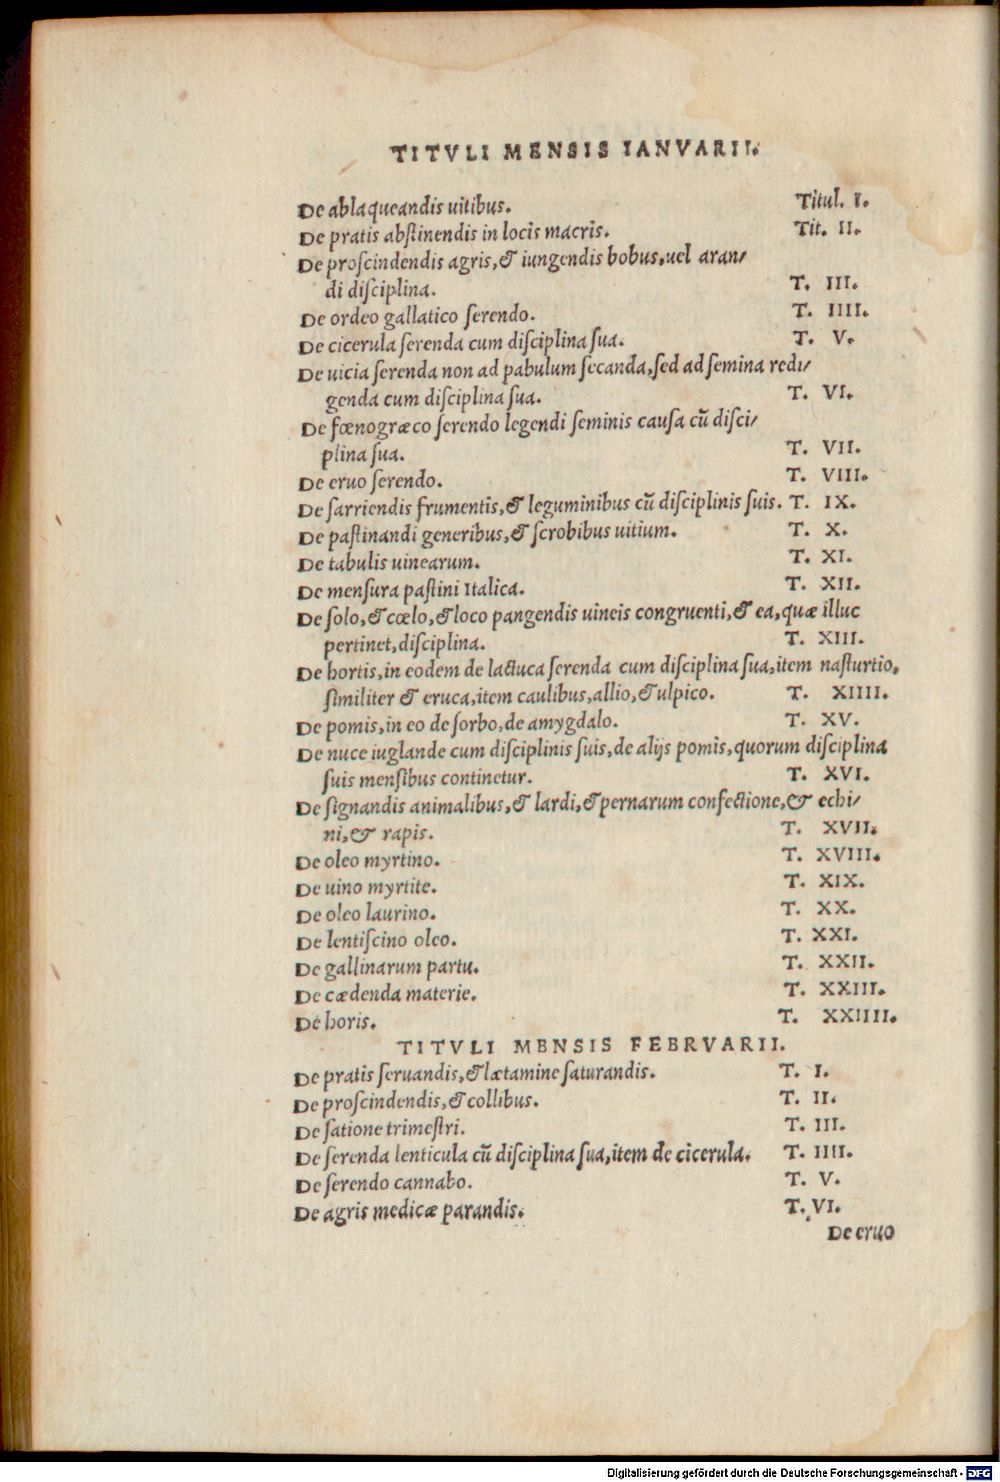 TITVLI MENSIS IANVARII.
De ablaqueandis uitibus. Titul. I.
De pratis abſtinendis in locis macris. Tit. II.
De proſcindendis agris, & iungendis bobus, uel aran/
di diſciplina. T. III.
De ordeo gallatico ſerendo. T. IIII.
De cicerula ſerenda cum diſciplina ſua. T. V.
De uicia ſerenda non ad pabulum ſecanda, ſed ad ſemina redi/
genda cum diſciplina ſua. T. VI.
De fœnogræco ſerendo legendi ſeminis cauſa cū diſci/
plina ſua. T. VII.
De eruo ſerendo. T. VIII.
De ſarriendis frumentis, & leguminibus cū diſciplinis ſuis. T. IX.
De paſtinandi generibus, & ſcrobibus uitium. T. X.
De tabulis uinearum. T. XI.
De menſura paſtini Italica. T. XII.
De ſolo, & cœlo, & loco pangendis uineis congruenti, & ea, quæ illuc
pertinet, diſciplina. T. XIII.
De hortis, in eodem de lactuca ſerenda cum diſciplina ſua, item naſturtio,
ſimiliter & eruca, item caulibus, allio, & ulpico. T. XIIII.
De pomis, in eo de ſorbo, de amygdalo. T. XV.
De nuce iuglande cum diſciplinis ſuis, de alijs pomis, quorum diſciplina
ſuis menſibus continetur. T. XVI.
De ſignandis animalibus, & lardi, & pernarum confectione, & echi/
ni, & rapis. T. XVII.
De oleo myrtino. T. XVIII.
De uino myrtite. T. XIX.
De oleo laurino. T. XX.
De lentiſcino oleo. T. XXI.
De gallinarum partu. T. XXII.
De cædenda materie. T. XXIII.
De horis. T. XXIIII.
TITVLI MBNSIS FEBRVARII.
De pratis ſeruandis, & lætamine ſaturandis. T. I.
De proſcindendis, & collibus. T. II.
De ſatione trimeſtri. T. III.
De ſerenda lenticula cū diſciplina ſua, item de cicerula. T. IIII.
De ſerendo cannabo. T. V.
De agris medicæ parandis. T. VI.
De eruo
Digitalisierung gefördert durch die Deutsche Forschungsgemeinschaft - DFG